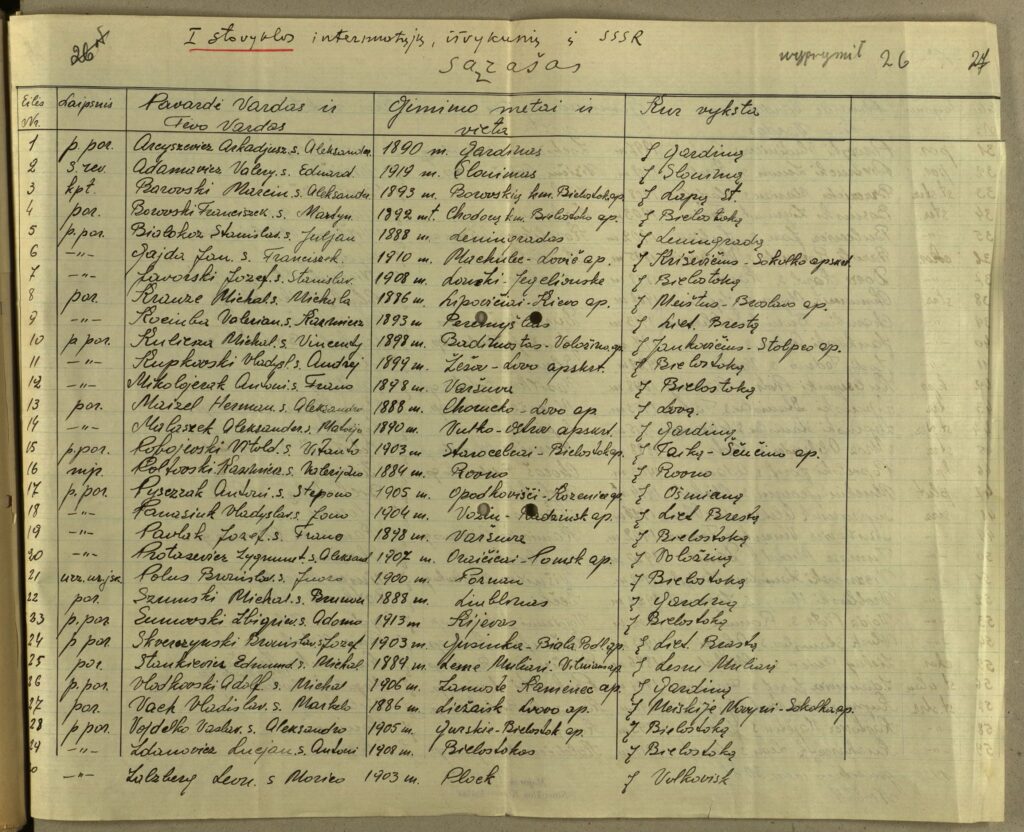 26
I stovyklos internuotųjų, išvykusių į SSSR
Sąrašas
26
Eilės Nr. Laipsnis Pavardė Vardas ir Tėvo Vardas Gimimo metai ir vieta Kur vyksta
1 p.por. Arcyszevicz Arkadjusz s. Aleksander 1890 m. Gardinas Į Gardiną
2 s.rev. Adamavicz Valery s. Eduard 1919 m. Slonimas Į Slonimą
3 kpt. Borovski Marcin s. Aleksandr 1893 m. Borovskių km. Bielostok ap. Į Lapų St.
4 por. Borovski Franciszek s. Martyn 1892 mt. Chodory km. Bielostoko ap. Į Bielostoką
5 p.por. Bialokoz Stanislav s. Juljan 1888 m. Leningradas Į Leningradą
6 -"- Gajda Jan s. Franciszek 1910 m. Lovič ap. Į Sokolko apskrt.
7 -"- Javorski Jozef s. Stanislav 1908 m. Į Bielostoką
8 por. Krauze Michal s. Michala 1886 m. Lipovičiai-Kievo ap. Į Braslavo ap.
9 -"- Valerian s. Kazimierz 1893 m. Peremyšlas Į Liet. Brestą
10 p.por. Kulicza Michal s. Vincenty 1898 m. Voložino ap. Į Jankovičius-Stolpco ap.
11 -"- Kupkovski Vladysl. s. Andrzej 1899 m. Lvovo apskrt. Į Bielostoką
12 -"- Mikolajczak Antoni s. Frano 1898 m. Varšuva Į Bielostoką
13 por. Maizel Herman s. Aleksandro 1888 m. Lvovo ap. Į Lvovą.
14 -"- Malaszek Aleksander s. 1890 m. Ostrov apskrt. Į Gardiną
15 p.por. Pobojevski Vitold s. Vitauto 1903 m. Bielostok ap. Į Ščučino ap.
16 mjr. Poltovski Kazimierz s. Valerijano 1884 m. Rovno Į Rovno
17 p.por. Pyszczak Antoni s. Stepono 1905 m. Kozenice ap. Į Ošmieną
18 -"- Panasiuk Vladyslav s. Jono 1904 m. Radzinsk ap. Į Liet Brestą
19 -"- Pavlak Jozef s. Frano 1898 m. Varšuva Į Bielostoką
20 -"- Protasevicz Zygmunt s. Aleksand 1907 m. ap. Į Voložiną
21 Polus Bronislav s. 1900 m. Poznan Į Bielostoką
22 por. Szumski Michal s. Brunon 1888 m. Liublinas Į Gardiną
23 p.por. Zbigniev s. Adomo 1913 m. Kijevas Į Bielostoką
24 p.por. Skverczynski Bronislav s. Jozef 1903 m. Biala Podl. ap. Į Liet. Brastą
25 por. Stankievicz Edmund s. Michal 1889 m. Vilniaus ap. Į
26 p.por. Vlodkovski Adolf s. Michal 1906 m. Kamieniec ap. Į Gardiną
27 por. Vack Vladislav s. Marko 1886 m. Ležaisk Lvovo ap. Į Sokolka ap.
28 p.por. Vojdelko Vaclav s. Aleksandro 1905 m. Gurskie-Bielostok ap. Į Bielostoką
29 -"- Zdanovicz Lucjan s. Antoni 1908 m. Bielostokas Į Bielostoką
-"- Zalzberg Leon s. Morico 1903 m. Plock Į Volkovisk